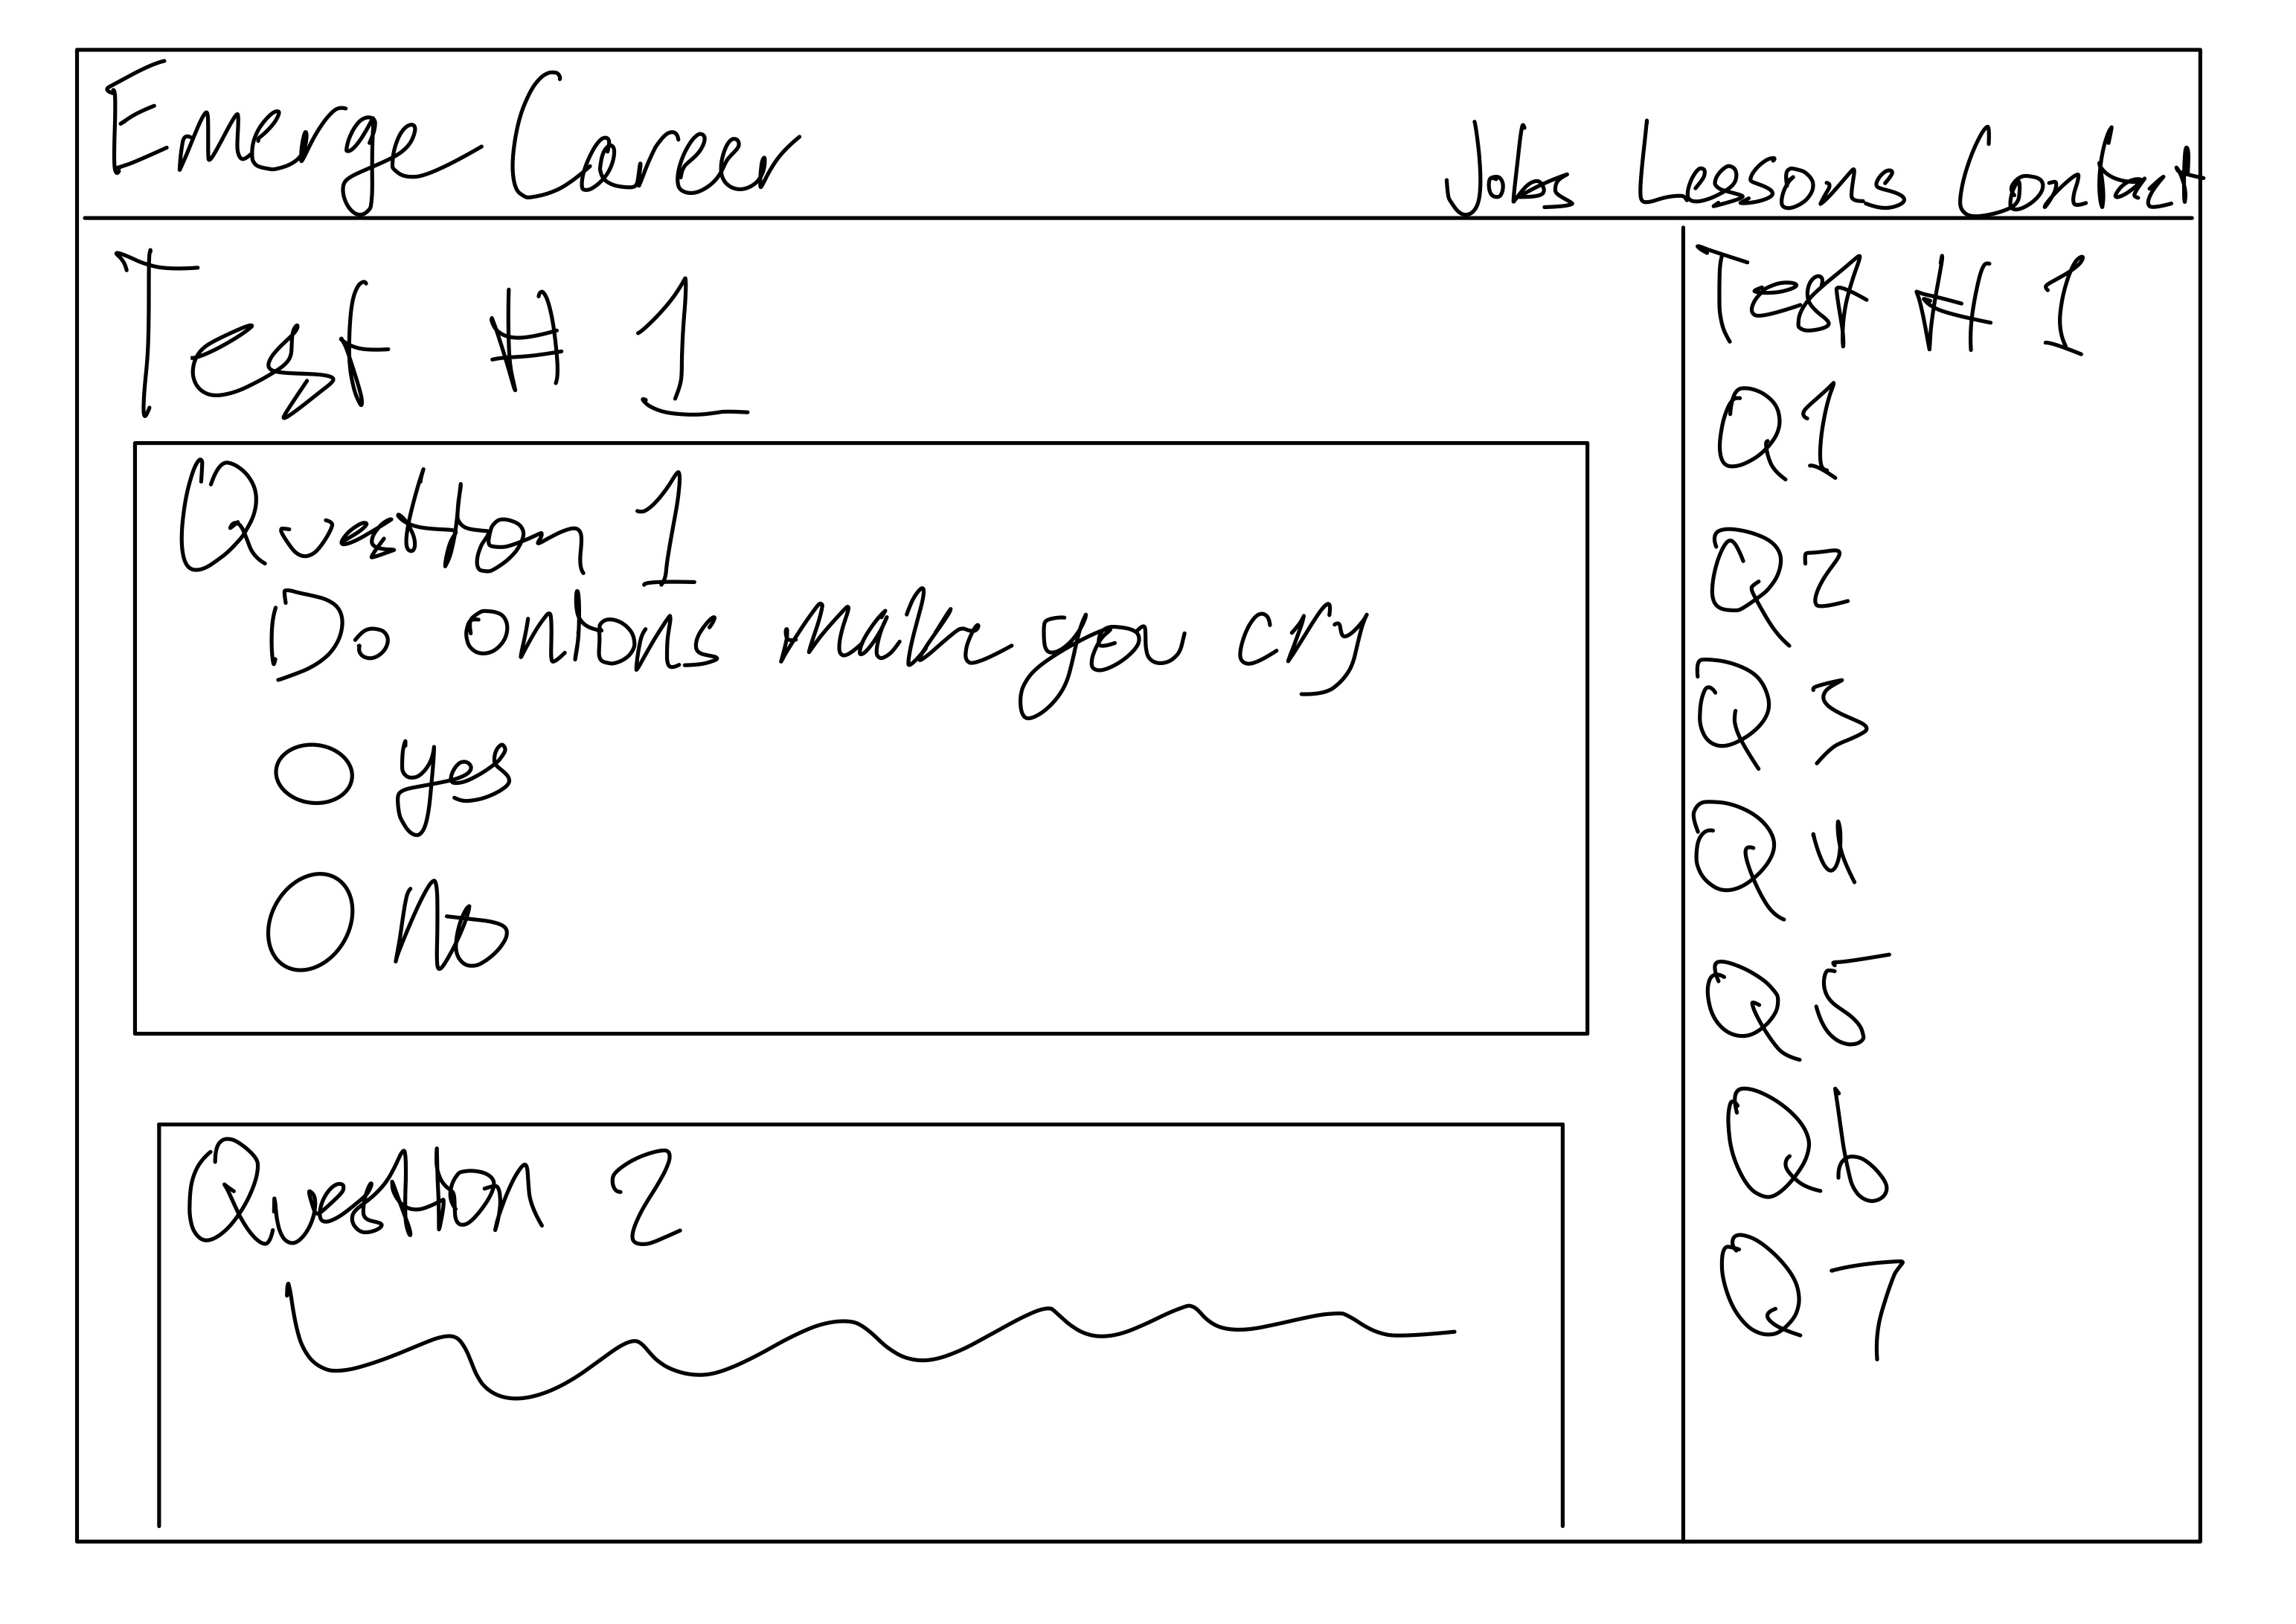 Emerge Career
Jobs Lessons Contact
Test # 1
Question 1
Do onions make you cry
yes
No
Question 2
Test # 1
Q1
Q2
Q3
Q4
Q5
Q6
Q7